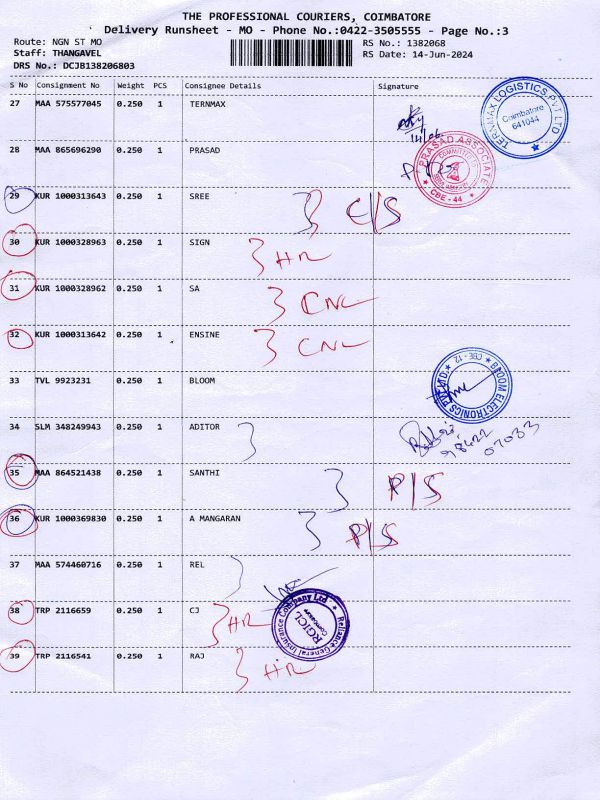 THE PROFESSIONAL COURIERS, COIMBATORE
Delivery Runsheet - MO - Phone No.:0422-3505555 - Page No.:3
Route: NGN ST MO
RS No.: 1382068
Staff: THANGAVEL
RS Date: 14-Jun-2024
DRS No.: DCJB138206803
S No Consignment No Weight PCS Consignee Details Signature
27 MAA 575577045 0.250 1 TERNMAX
14/06
TERNMAX LOGISTICS PVT LTD
Coimbatore
641044
28 MAA 865696290 0.250 1 PRASAD
PRASAD ASSOCIATE
CBE - 44
29 KUR 1000313643 0.250 1 SREE C/S
30 KUR 1000328963 0.250 1 SIGN HR
31 KUR 1000328962 0.250 1 SA CNL
32 KUR 1000313642 0.250 1 ENSINE CNL
33 TVL 9923231 0.250 1 BLOOM
BLOOM ELECTRONICS PVT LTD
CBE - 12
34 SLM 348249943 0.250 1 ADITOR
98422
07033
35 MAA 864521438 0.250 1 SANTHI P/S
36 KUR 1000369830 0.250 1 A MANGARAN P/S
37 MAA 574460716 0.250 1 REL
38 TRP 2116659 0.250 1 CJ HR
Reliance General Insurance Company Ltd
RGICL
Coimbatore
39 TRP 2116541 0.250 1 RAJ HR